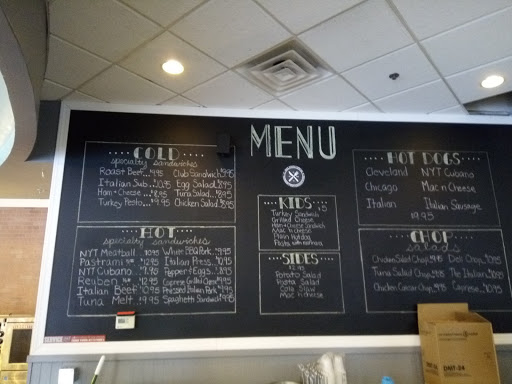 MENU
COLD
specialty sandwiches
Roast Beef...9.95 Club Sandwich 
Italian Sub...10.95 Egg Salad 8.95
Ham + Cheese...8.95 Tuna Salad 8.95
Turkey Pesto...9.95 Chicken Salad 8.95
HOT
specialty sandwiches
NYT Meatball 10.95 White BBQ Pork 9.95
Pastrami 12.95 Italian Press 10.95
NYT Cubano 9.95 Pepper + Eggs 8.95
Reuben 12.95 Caprese Grilled Cheese
Italian Beef 10.95 Italian Pork 9.95
Tuna Melt 9.95 Spaghetti Sandwich 9.95
KIDS
Turkey Sandwich 5
Grilled Cheese
Ham + Cheese Sandwich
Mac n cheese
Plain Hotdog
Pasta with marinara
SIDES
Potato Salad
Pasta Salad
Cole Slaw
Mac n cheese
HOT DOGS
Cleveland NYT Cubano
Chicago Mac n Cheese
Italian Italian Sausage
9.95
CHOP
salads
Chicken Salad Chop 9.95 Deli Chop
Tuna Salad Chop 9.95 The Italian
Chicken Caesar Chop 9.95 Caprese